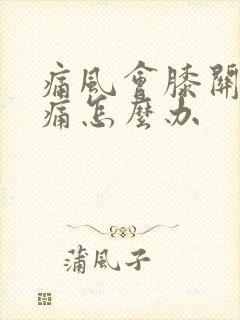 痛風會膝關
痛怎麼办
蒲風子